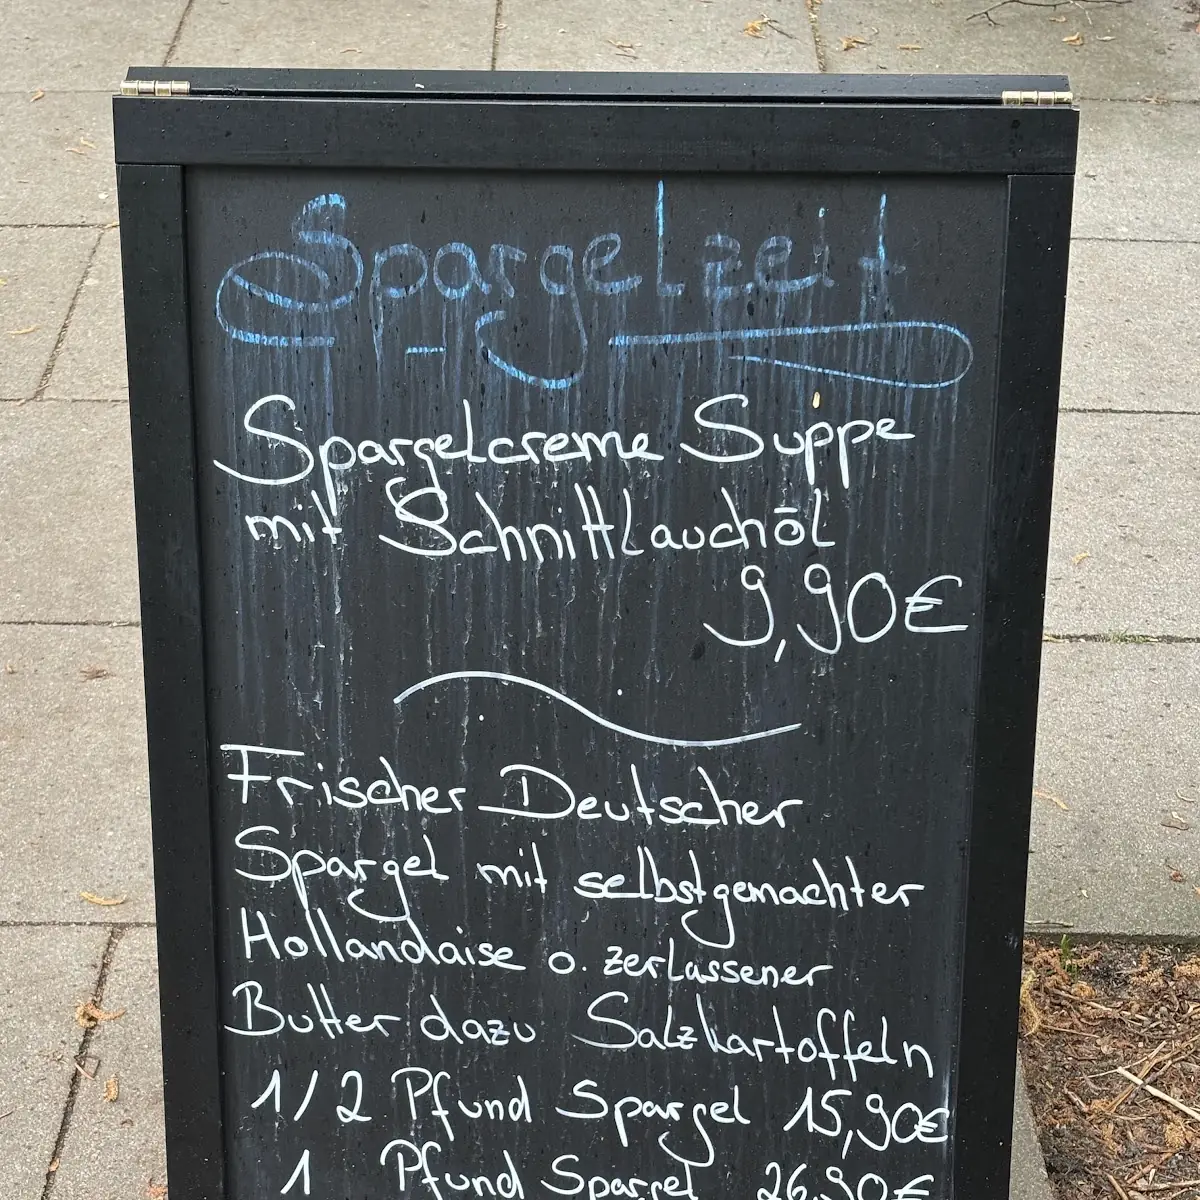 Spargelzeit
Spargelcreme Suppe
mit Schnittlauchöl
9,90€
Frischer Deutscher
Spargel mit selbstgemachter
Hollandaise o. zerlassener
Butter dazu Salzkartoffeln
1/2 Pfund Spargel 15,90€
1 Pfund Spargel 26,90€